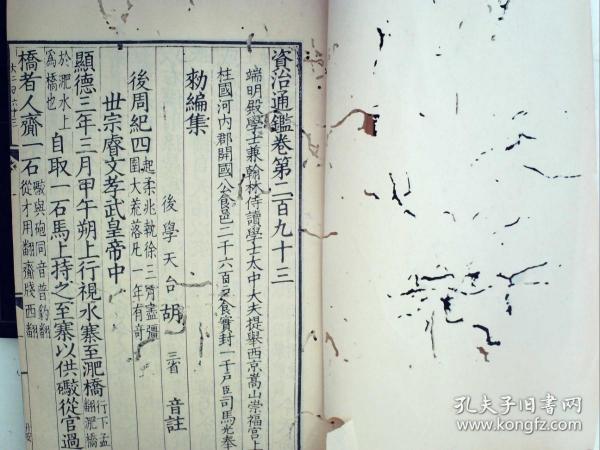 資治通鑑卷第二百九十三
端明殿學士兼翰林侍讀學士太中大夫提舉西京嵩山崇福宮上
柱國河內郡開國公食邑二千六百戶食實封一千戶臣司馬光奉
勑編集
後學天台胡三省音註
後周紀四起柔兆執徐三月盡彊圉大荒落凡一年有奇
世宗睿文孝武皇帝中
顯德三年三月甲午朔上行視水寨至淝橋行下孟翻淝橋
於淝水上爲橋也自取一石馬上持之至寨以供礮從官過
橋者人齎一石礮與砲同音普豹翻從才用翻齎牋西翻
孔夫子旧书网
www.kongfz.com